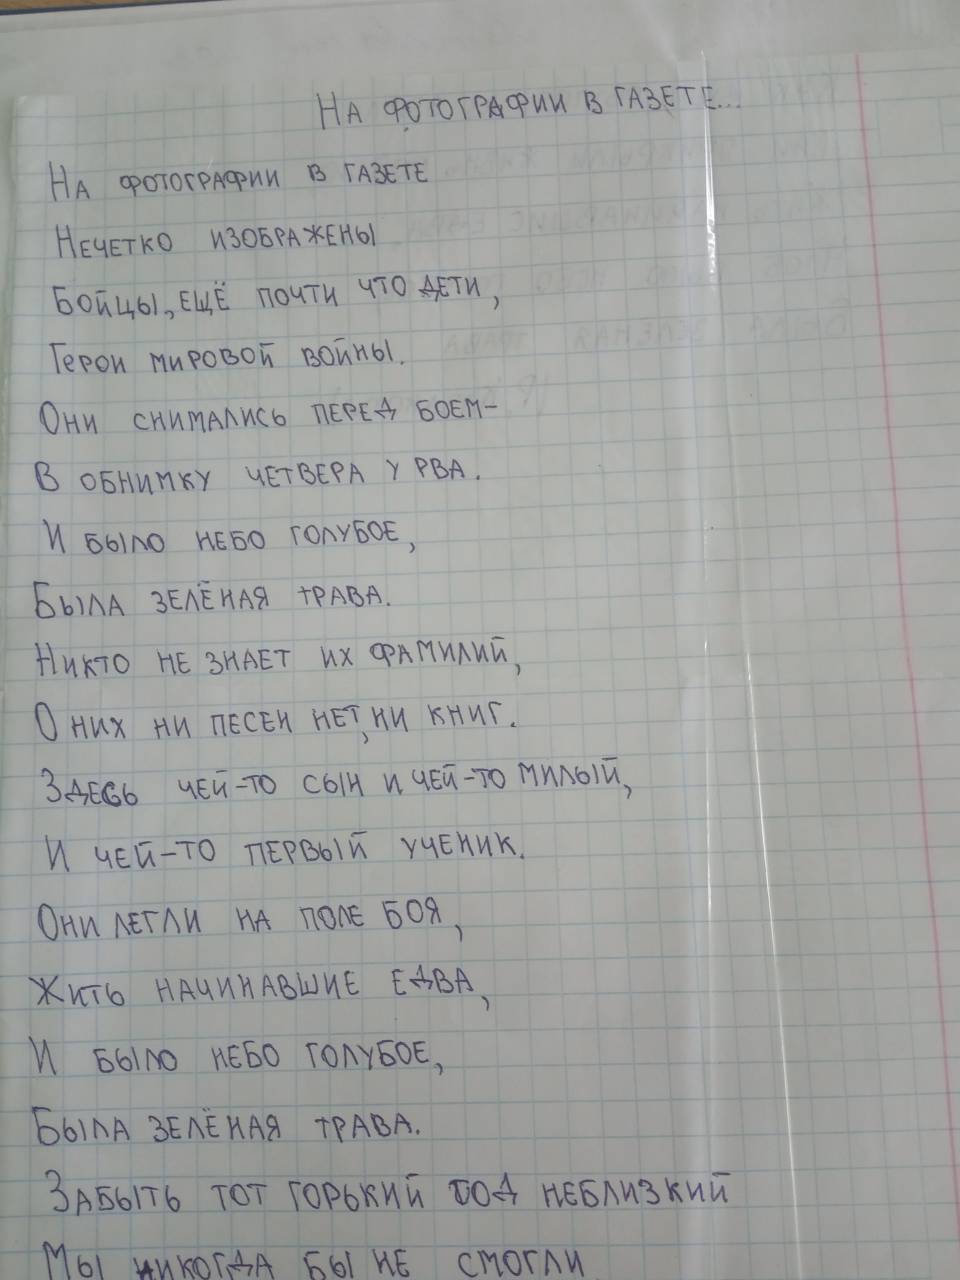 На фотографии в газете...
На фотографии в газете
Нечетко изображены
Бойцы, ещё почти что дети,
Герои мировой войны.
Они снимались перед боем-
В обнимку четвера у рва.
И было небо голубое,
Была зелёная трава.
Никто не знает их фамилий,
О них ни песен нет, ни книг.
Здесь чей-то сын и чей-то милый,
И чей-то первый ученик.
Они легли на поле боя,
Жить начинавшие едва,
И было небо голубое,
Была зелёная трава.
Забыть тот горький год неблизкий
Мы никогда бы не смогли